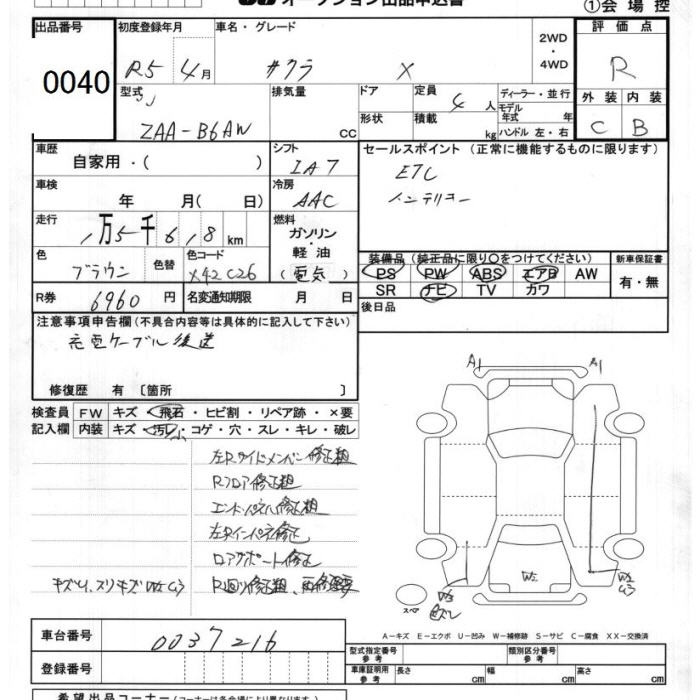 オークション出品申込書
①会場控
出品番号
初度登録年月
車名・グレード
2WD・4WD
評価点
0040
R5 4月
サクラ X
R
型式
排気量 CC
ドア
形状
定員 4人
積載 kg
ディーラー・並行
モデル年式 年
ハンドル 左・右
外装 内装
C B
ZAA-B6AW
車歴
自家用・( )
シフト
IA7
セールスポイント (正常に機能するものに限ります)
ETC
インテリキー
車検
年 月( 日)
冷房
AAC
走行
1万5千618km
燃料
ガソリン・軽油
(電気)
色
ブラウン
色替
色コード
X42 C26
装備品 (純正品に限り○をつけてください)
新車保証書
PS PW ABS エアB AW
有・無
SR ナビ TV カワ
R券
6960円
名変通知期限 月 日
後日品
注意事項申告欄(不具合内容等は具体的に記入して下さい)
充電ケーブル後送
修復歴 有 〔箇所 〕
A1 A1
検査員記入欄
FW キズ・飛石・ヒビ割・リペア跡・×要
内装 キズ・汚レ・コゲ・穴・スレ・キレ・破レ
小
左Rサイドメンバー修正粗
Rフロア修正粗
エンドパネル修正粗
左Rインパネ修正
ロアサポート修正
キズU、スリキズW2 G3
R回り修正粗、再修理要
W2
W3
W2
G3
スペア
A－キズ E－エクボ U－凹み W－補修跡 S－サビ C－腐食 XX－交換済
車台番号
0037216
登録番号
型式指定番号 参考
類別区分番号 参考
車庫証明用 参考
長さ cm
幅 cm
高さ cm
希望出品コーナー (コーナーは各会場により異なります)